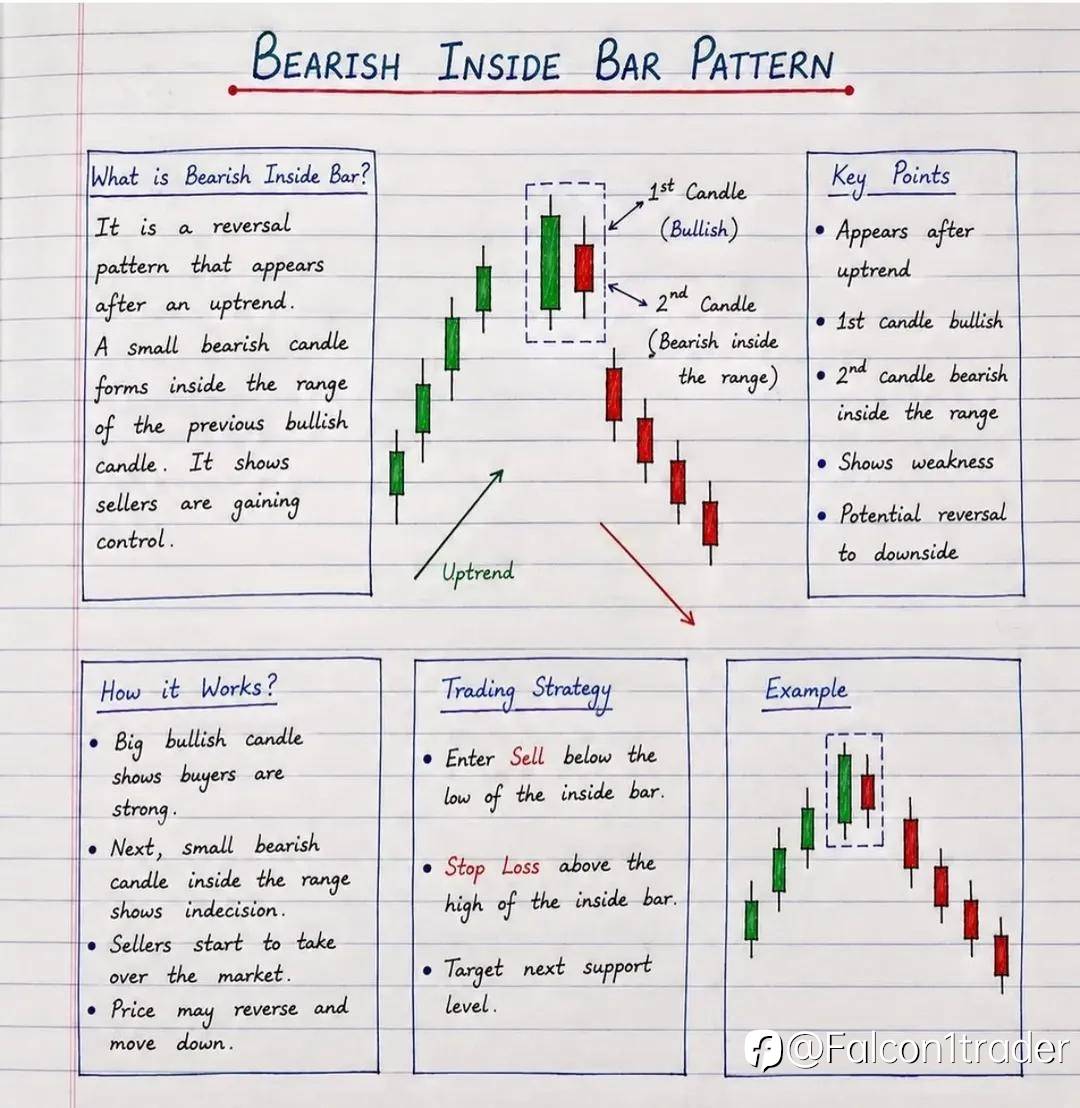 BEARISH INSIDE BAR PATTERN
What is Bearish Inside Bar?
It is a reversal
pattern that appears
after an uptrend.
A small bearish candle
forms inside the range
of the previous bullish
candle. It shows
sellers are gaining
control.
1st Candle
(Bullish)
2nd Candle
(Bearish inside
the range)
Uptrend
Key Points
• Appears after
uptrend
• 1st candle bullish
• 2nd candle bearish
inside the range
• Shows weakness
• Potential reversal
to downside
How it Works?
• Big bullish candle
shows buyers are
strong.
• Next, small bearish
candle inside the range
shows indecision.
• Sellers start to take
over the market.
• Price may reverse and
move down.
Trading Strategy
• Enter Sell below the
low of the inside bar.
• Stop Loss above the
high of the inside bar.
• Target next support
level.
Example
@Falcon1trader